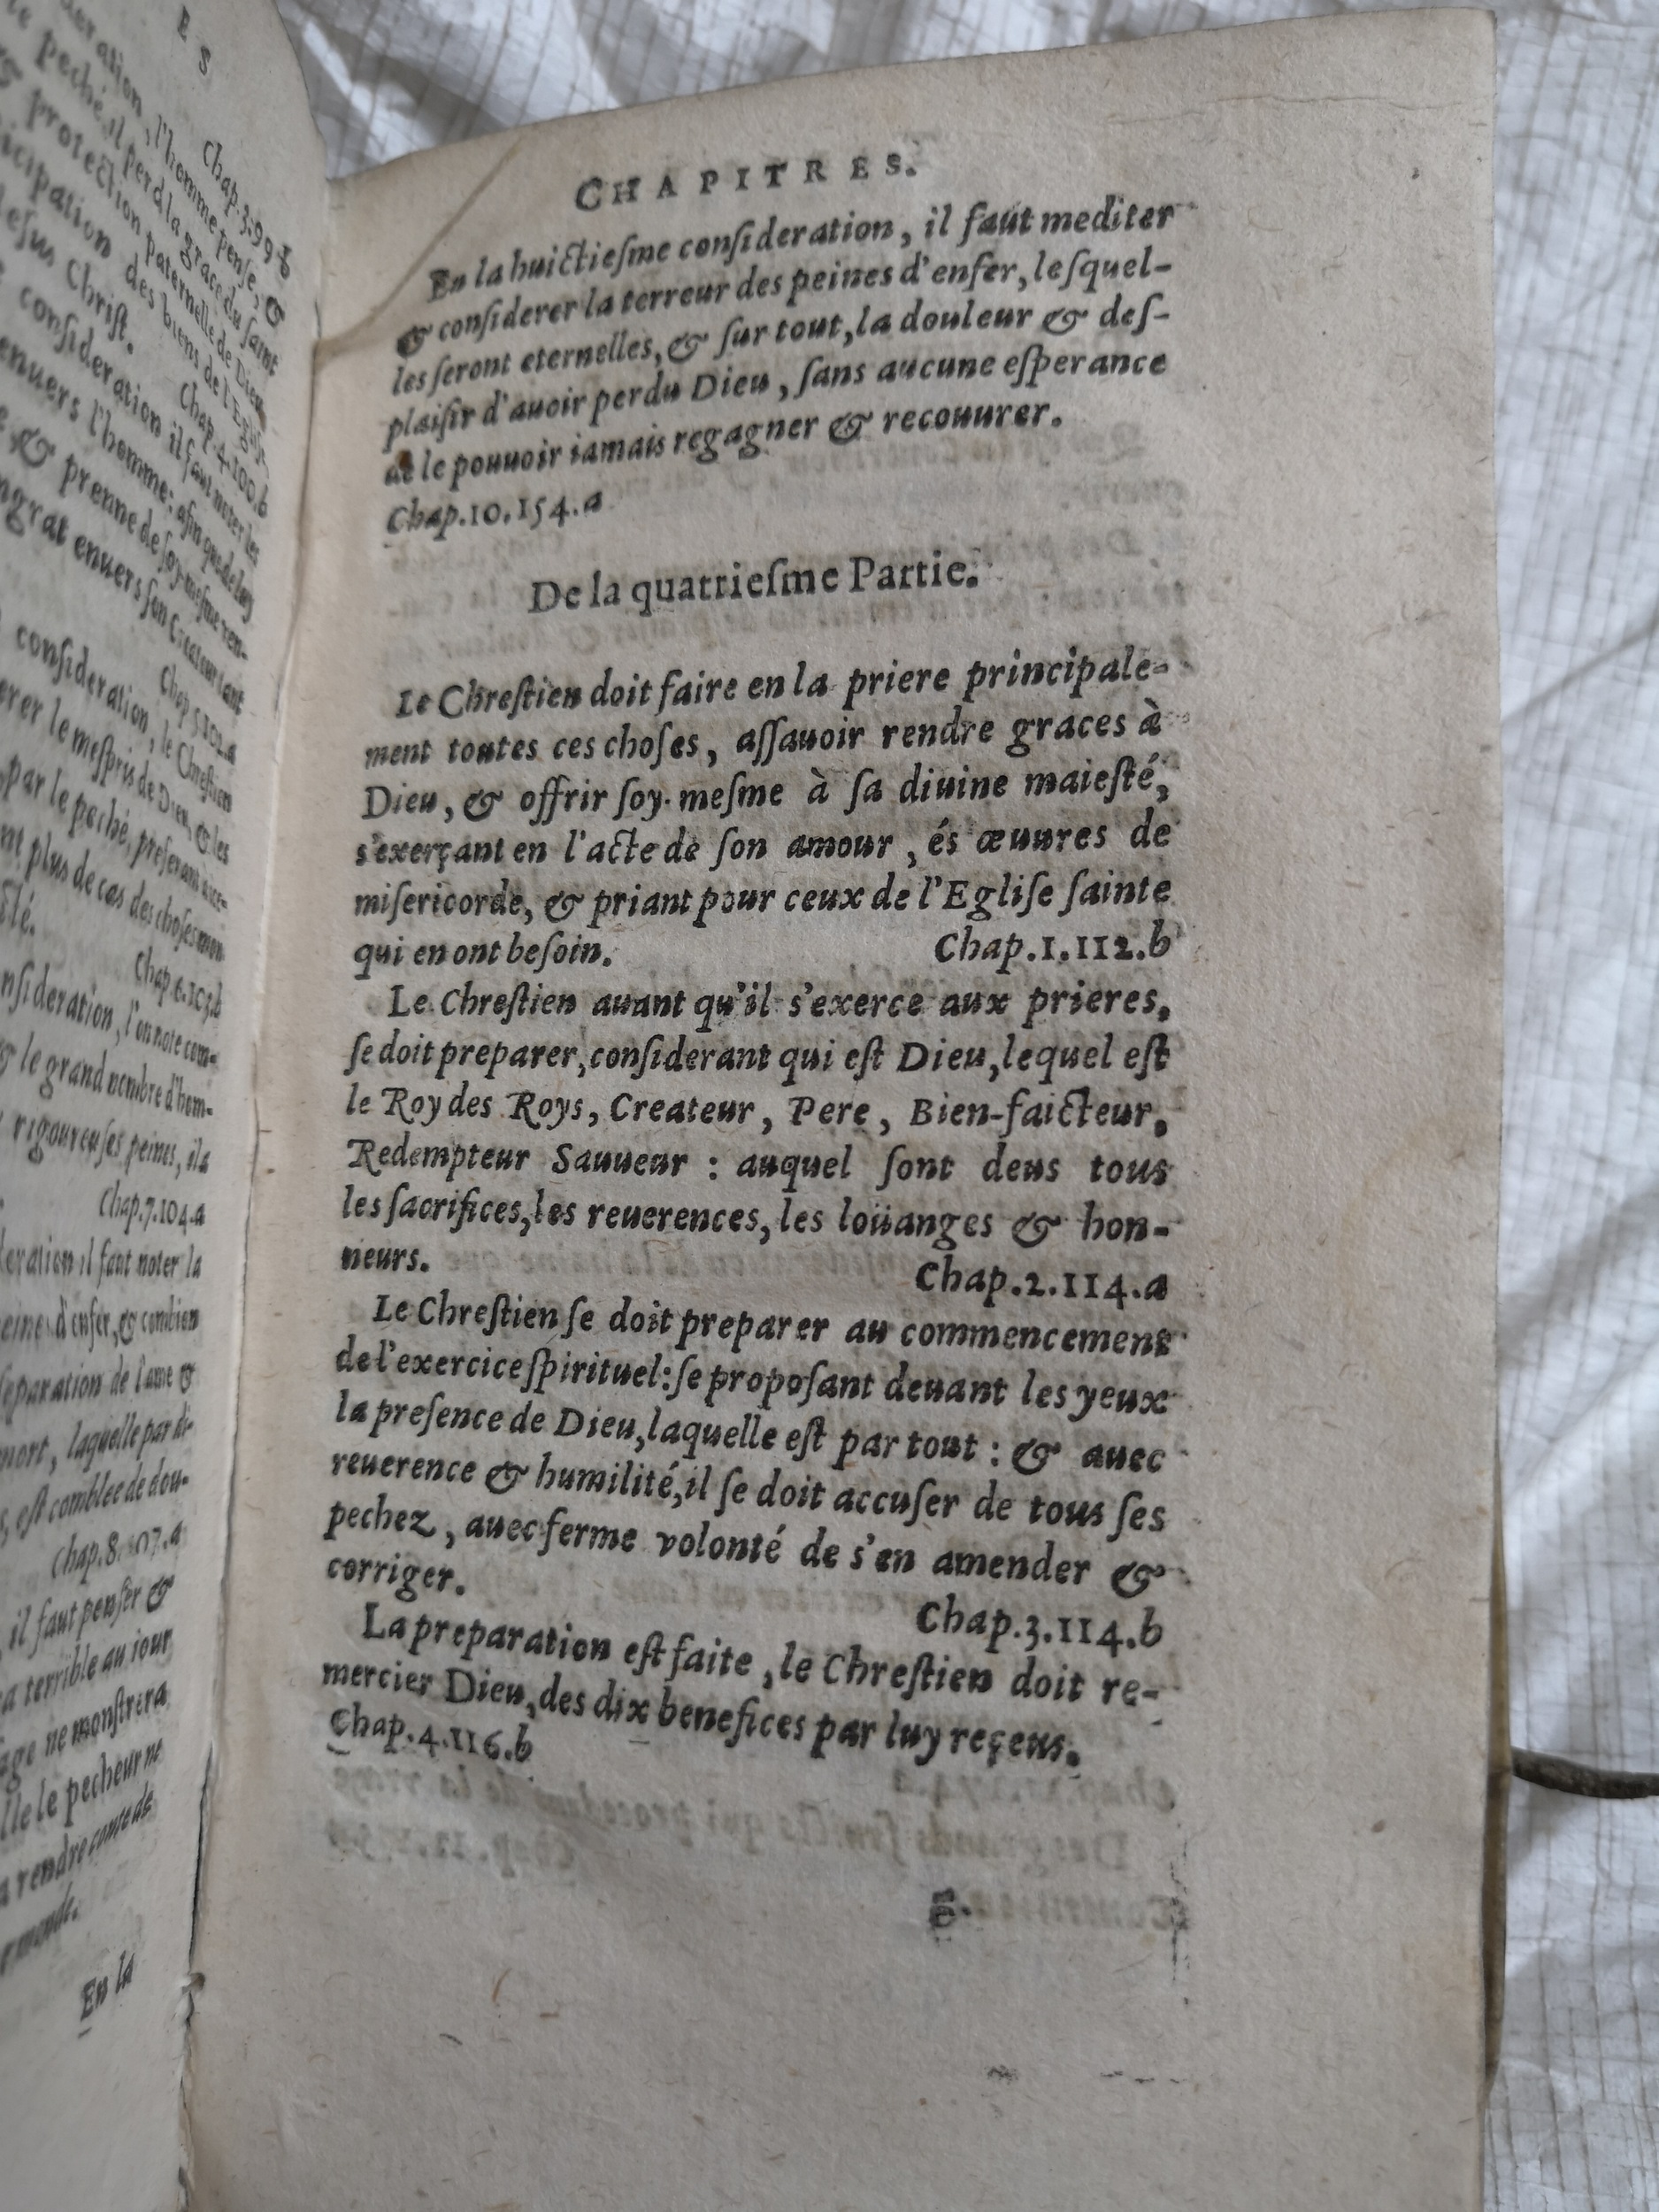 E S
Chap.3.99.b
eration, l'homme pense, &
peché, il perd la grace du saint
protection paternelle de Dieu
icipation des biens de l'Eglise
esus Christ. Chap.4.100.b
consideration il faut noter les
enuers l'homme: afin que de luy
& prenne de soy-mesme ren-
ngrat enuers son Createur tant
Chap.5.102.a
consideration, le Chrestien
erer le mespris de Dieu, & les
par le peché, preferant
nt plus de cas des choses mon
Chap.6.103.b
nsideration, l'on note com-
le grand nombre d'hom-
rigoureuses peines, ils
Chap.7.104.a
deration il faut noter la
eine d'enfer, & combien
separation de l'ame &
mort, laquelle par di-
s, est comblee de dou-
Chap.8.107.a
il faut penser &
a terrible au iour
age ne monstrera
lle le pecheur ne
a rendre conte de
monde.
En la
CHAPITRES.
En la huictieſme conſideration, il faut mediter
& conſiderer la terreur des peines d'enfer, leſquel-
les ſeront eternelles, & ſur tout, la douleur & deſ-
plaiſir d'auoir perdu Dieu, ſans aucune eſperance
de le pouuoir iamais regagner & recouurer.
Chap.10.154.a
De la quatrieſme Partie.
Le Chreſtien doit faire en la priere principale-
ment toutes ces choſes, aſſauoir rendre graces à
Dieu, & offrir ſoy-meſme à ſa diuine maieſté,
s'exerçant en l'acte de ſon amour, és œuures de
miſericorde, & priant pour ceux de l'Egliſe ſainte
qui en ont beſoin. Chap.1.112.b
Le Chreſtien auant qu'il s'exerce aux prieres,
ſe doit preparer, conſiderant qui eſt Dieu, lequel eſt
le Roy des Roys, Createur, Pere, Bien-faicteur,
Redempteur Sauueur : auquel ſont deus tous
les ſacrifices, les reuerences, les loüanges & hon-
neurs. Chap.2.114.a
Le Chreſtien ſe doit preparer au commencement
de l'exercice ſpirituel: ſe propoſant deuant les yeux
la preſence de Dieu, laquelle eſt par tout : & auec
reuerence & humilité, il ſe doit accuſer de tous ſes
pechez, auec ferme volonté de s'en amender &
corriger. Chap.3.114.b
La preparation eſt faite, le Chreſtien doit re-
mercier Dieu, des dix benefices par luy reçeus.
Chap.4.116.b